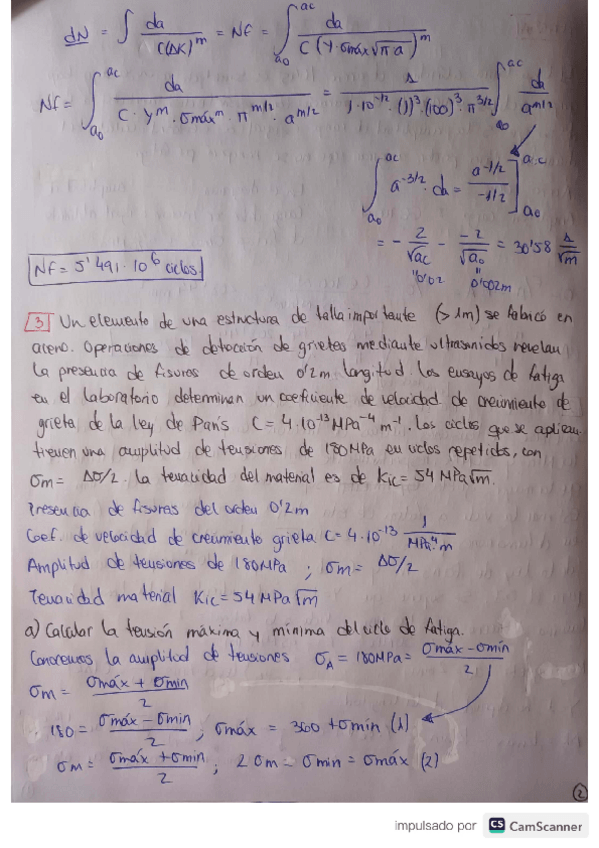 dN = ∫ da / C(ΔK)^m = Nf = ∫_{a0}^{ac} da / C (Y·σmáx √π a)^m
Nf = ∫_{a0}^{ac} da / C · Y^m · σmáx^m · π^{m/2} · a^{m/2} = 1 / 1·10^{-12} · (1)^3 · (100)^3 · π^{3/2} ∫_{a0}^{ac} da / a^{m/2}
∫_{a0}^{ac} a^{-3/2} · da = a^{-1/2} / -1/2 ]_{a0}^{ac}
= - 2/√ac - -2/√a0 = 30'58 1/√m
"0'02 "0'002m
Nf = 5'491·10^6 ciclos
3 Un elemento de una estructura de talla importante (>1m) se fabricó en
acero. Operaciones de detección de grietas mediante ultrasonidos revelan
la presencia de fisuras de orden 0'2m longitud. Los ensayos de fatiga
en el laboratorio determinan un coeficiente de velocidad de crecimiento de
grieta de la ley de Paris C = 4·10^{-13} MPa^{-4} m^{-1}. Los ciclos que se aplican
tienen una amplitud de tensiones de 180MPa en ciclos repetidos, con
σm = Δσ/2. La tenacidad del material es de KIC = 54 MPa√m.
Presencia de fisuras del orden 0'2m
Coef. de velocidad de crecimiento grieta C = 4·10^{-13} 1 / MPa^4·m
Amplitud de tensiones de 180MPa ; σm = Δσ/2
Tenacidad material KIC = 54 MPa√m
a) Calcular la tensión máxima y mínima del ciclo de fatiga.
Conocemos la amplitud de tensiones σA = 180MPa = σmáx - σmín / 2
σm = σmáx + σmin / 2
180 = σmáx - σmin / 2 ; σmáx = 360 + σmín (1)
σm = σmáx + σmin / 2 ; 2σm - σmin = σmáx (2)
2
impulsado por CS CamScanner